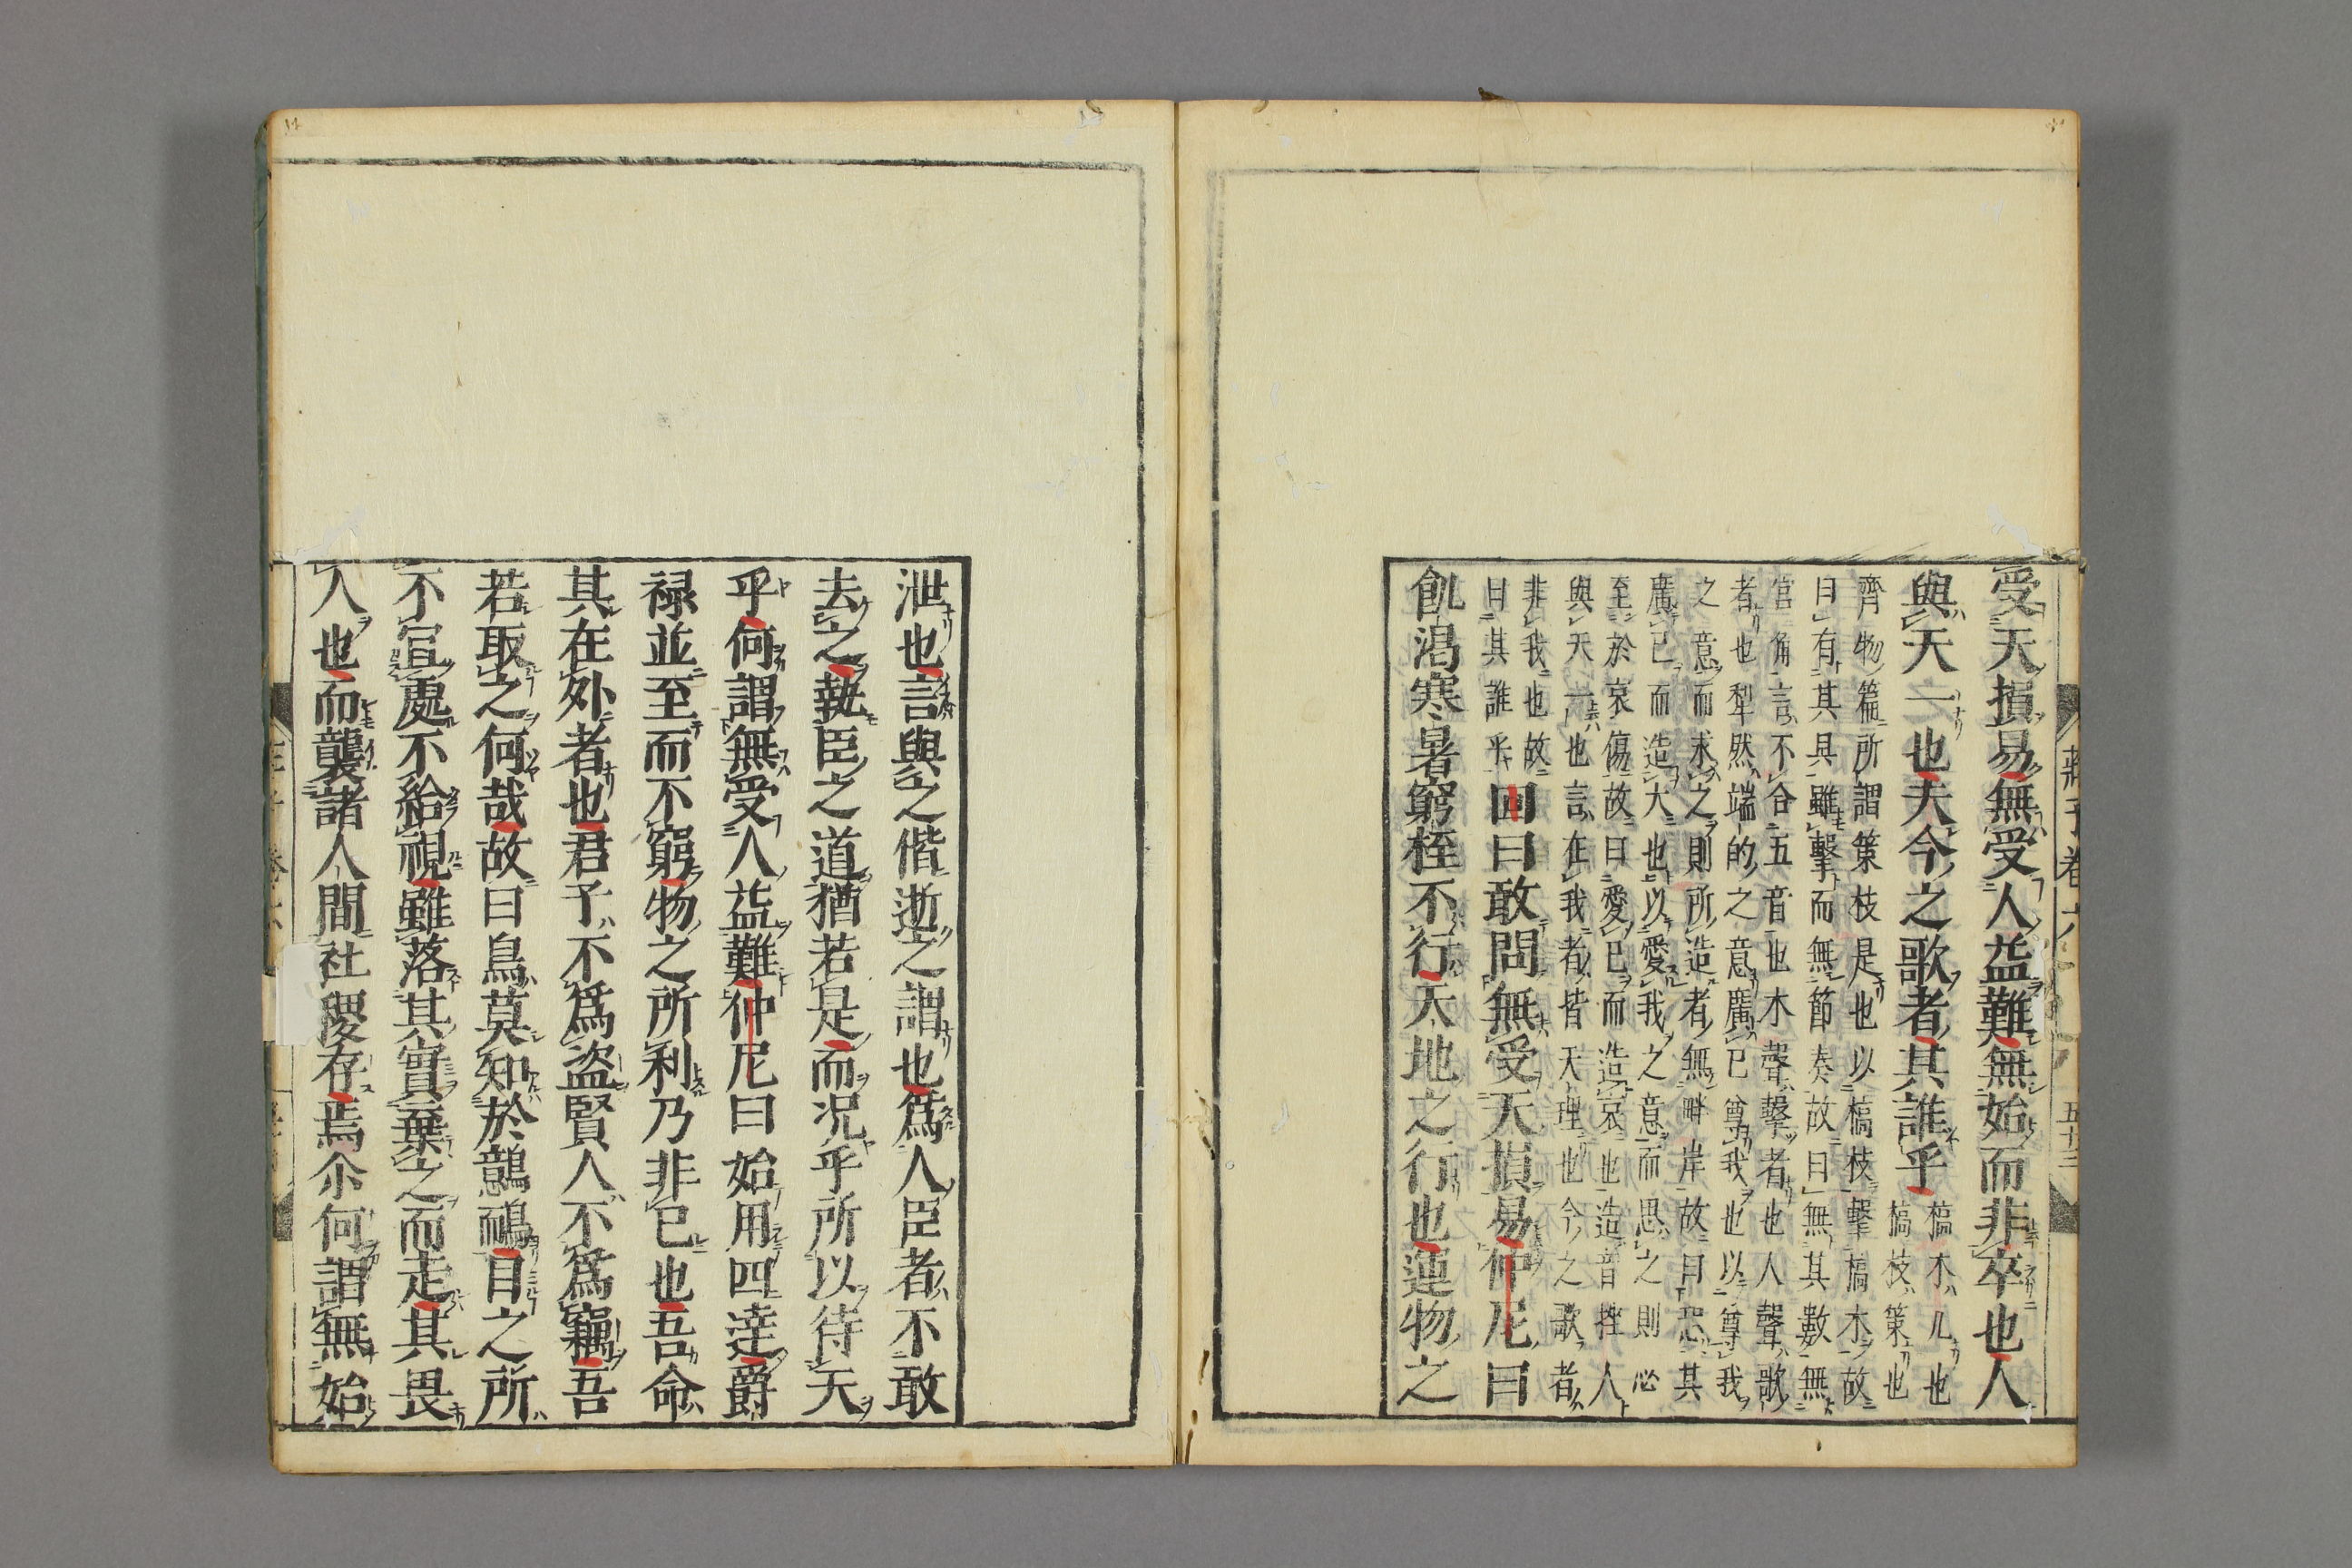 莊子卷六
五十三
受天損易無受人益難無始而非卒也人
與天一也夫今之歌者其誰乎
槁木几也
槁枝策也
齊物篇所謂策枝是也以槁枝擊槁木故
曰有其具雖擊而無節奏故曰無其數無
宮角言不合五音也木聲擊者也人聲歌
者也犁然端的之意廣已尊我也以尊我
之意而求之則所造者無畔岸故曰恐其
廣已而造大也以愛我之意而思之則必
至於哀傷故曰愛已而造哀也造音挫人
與天一也言在我者皆天理也今之歌者
非我也故
曰其誰乎
回曰敢問無受天損易仲尼曰
飢渇寒暑窮桎不行天地之行也運物之
泄也言與之偕逝之謂也爲人臣者不敢
去之執臣之道猶若是而况乎所以待天
乎何謂無受人益難仲尼曰始用四達爵
禄並至而不窮物之所利乃非已也吾命
其在外者也君子不爲盗賢人不爲竊吾
若取之何哉故曰鳥莫知於鷾鴯目之所
不宜處不給視雖落其實棄之而走其畏
人也而襲諸人間社稷存焉尒何謂無始